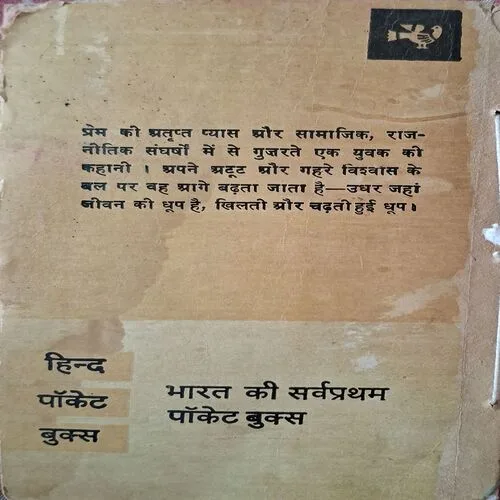 प्रेम की अतृप्त प्यास और सामाजिक, राज-
नीतिक संघर्षों में से गुज़रते एक युवक की
कहानी । अपने अटूट और गहरे विश्वास के
बल पर वह आगे बढ़ता जाता है—उधर जहां
जीवन की धूप है, खिलती और चढ़ती हुई धूप।
हिन्द
पॉकेट
बुक्स
भारत की सर्वप्रथम
पॉकेट बुक्स